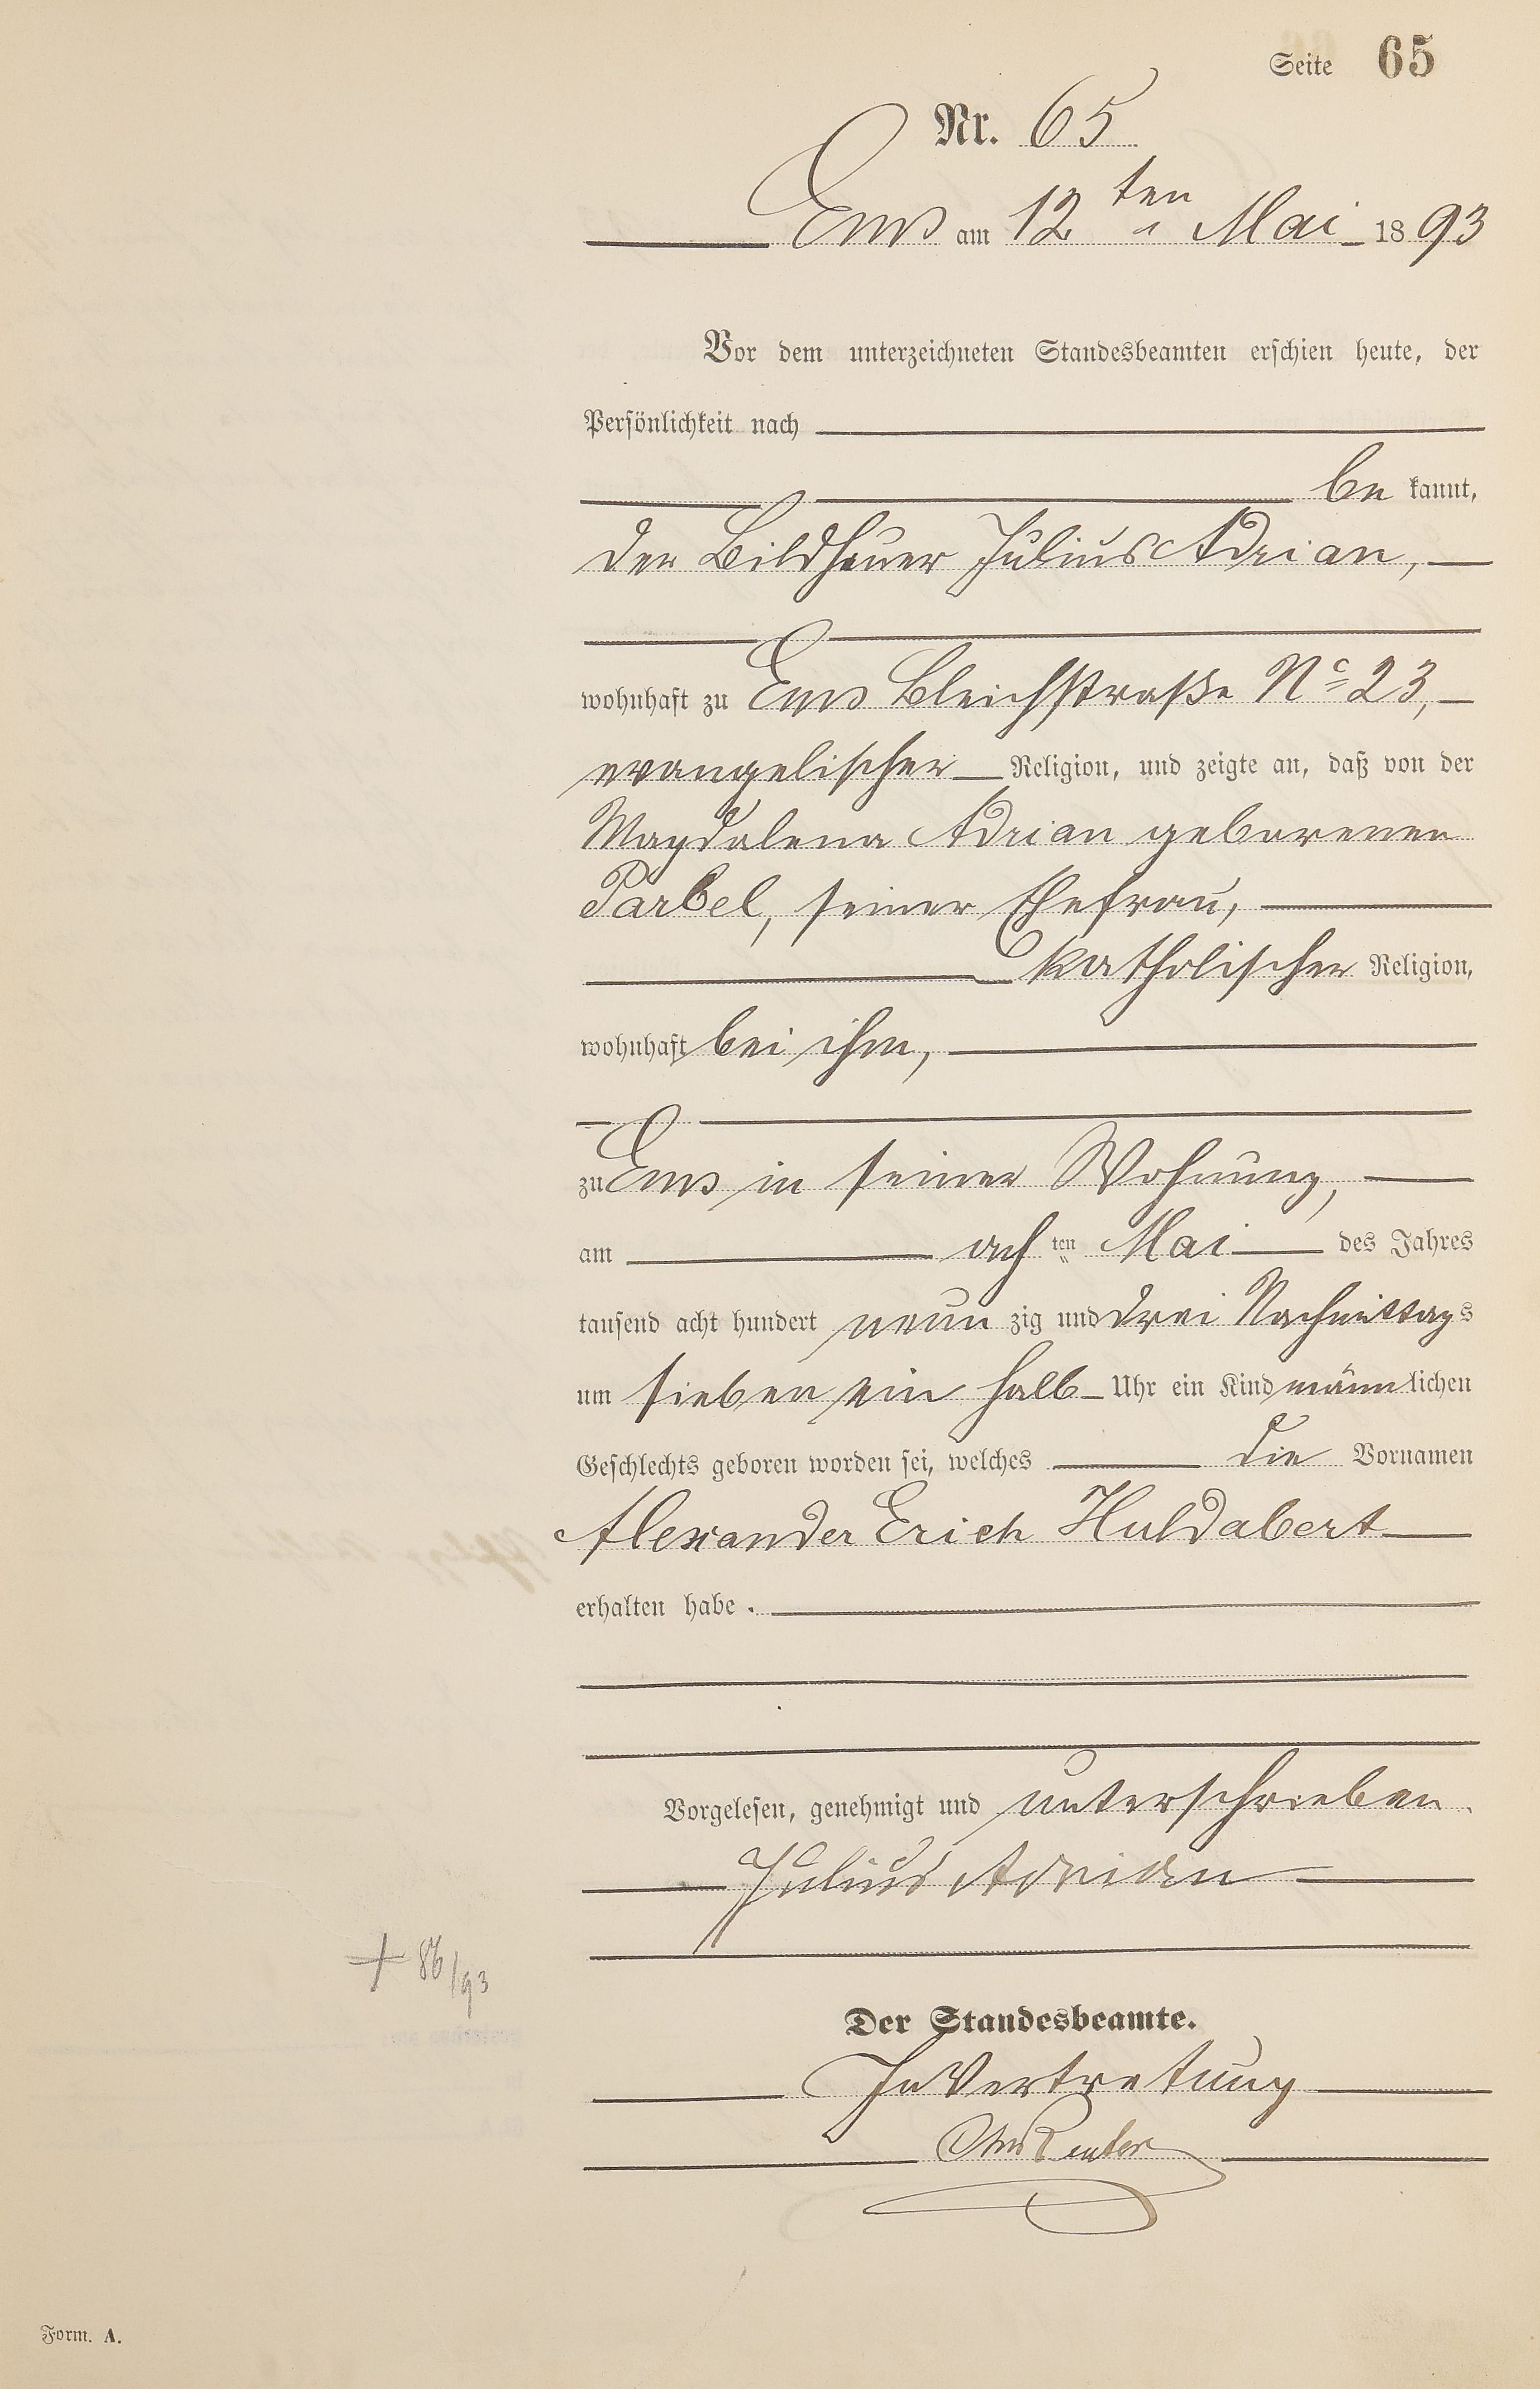 Seite 65
Nr. 65
Ems am 12ten Mai 1893
Vor dem unterzeichneten Standesbeamten erschien heute, der
Persönlichkeit nach
be kannt,
der Bildhauer Julius Adrian,
wohnhaft zu Ems Bleichstraße No 23,
evangelischer Religion, und zeigte an, daß von der
Magdalena Adrian geborenen
Parbel, seiner Ehefrau,
katholischer Religion,
wohnhaft bei ihm,
zu Ems in seiner Wohnung,
am achten Mai des Jahres
tausend acht hundert neun zig und drei Nachmittags
um sieben ein halb Uhr ein Kind männlichen
Geschlechts geboren worden sei, welches die Vornamen
Alexander Erich Huldabert
erhalten habe.
Vorgelesen, genehmigt und unterschrieben.
Julius Adrian
+ 86/93
Der Standesbeamte.
In Vertretung
Form. A.